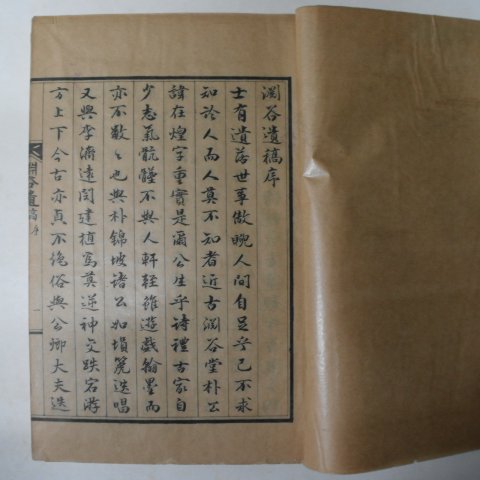 澗谷遺稿序
士有遺落世事傲睨人間自足乎己不求
知於人而人莫不知者近古澗谷堂朴公
諱在煌字重實是蕭公生乎詩禮古家自
少志氣骯髒不與人軒輊雖遊戲翰墨而
亦不數々也與朴錦坡諸公如塤箎迭唱
又與李濟遠閔建植寫莫逆神交跌宕游
方上下今古亦貞不絶俗與公卿大夫迭
澗谷遺稿 序
一